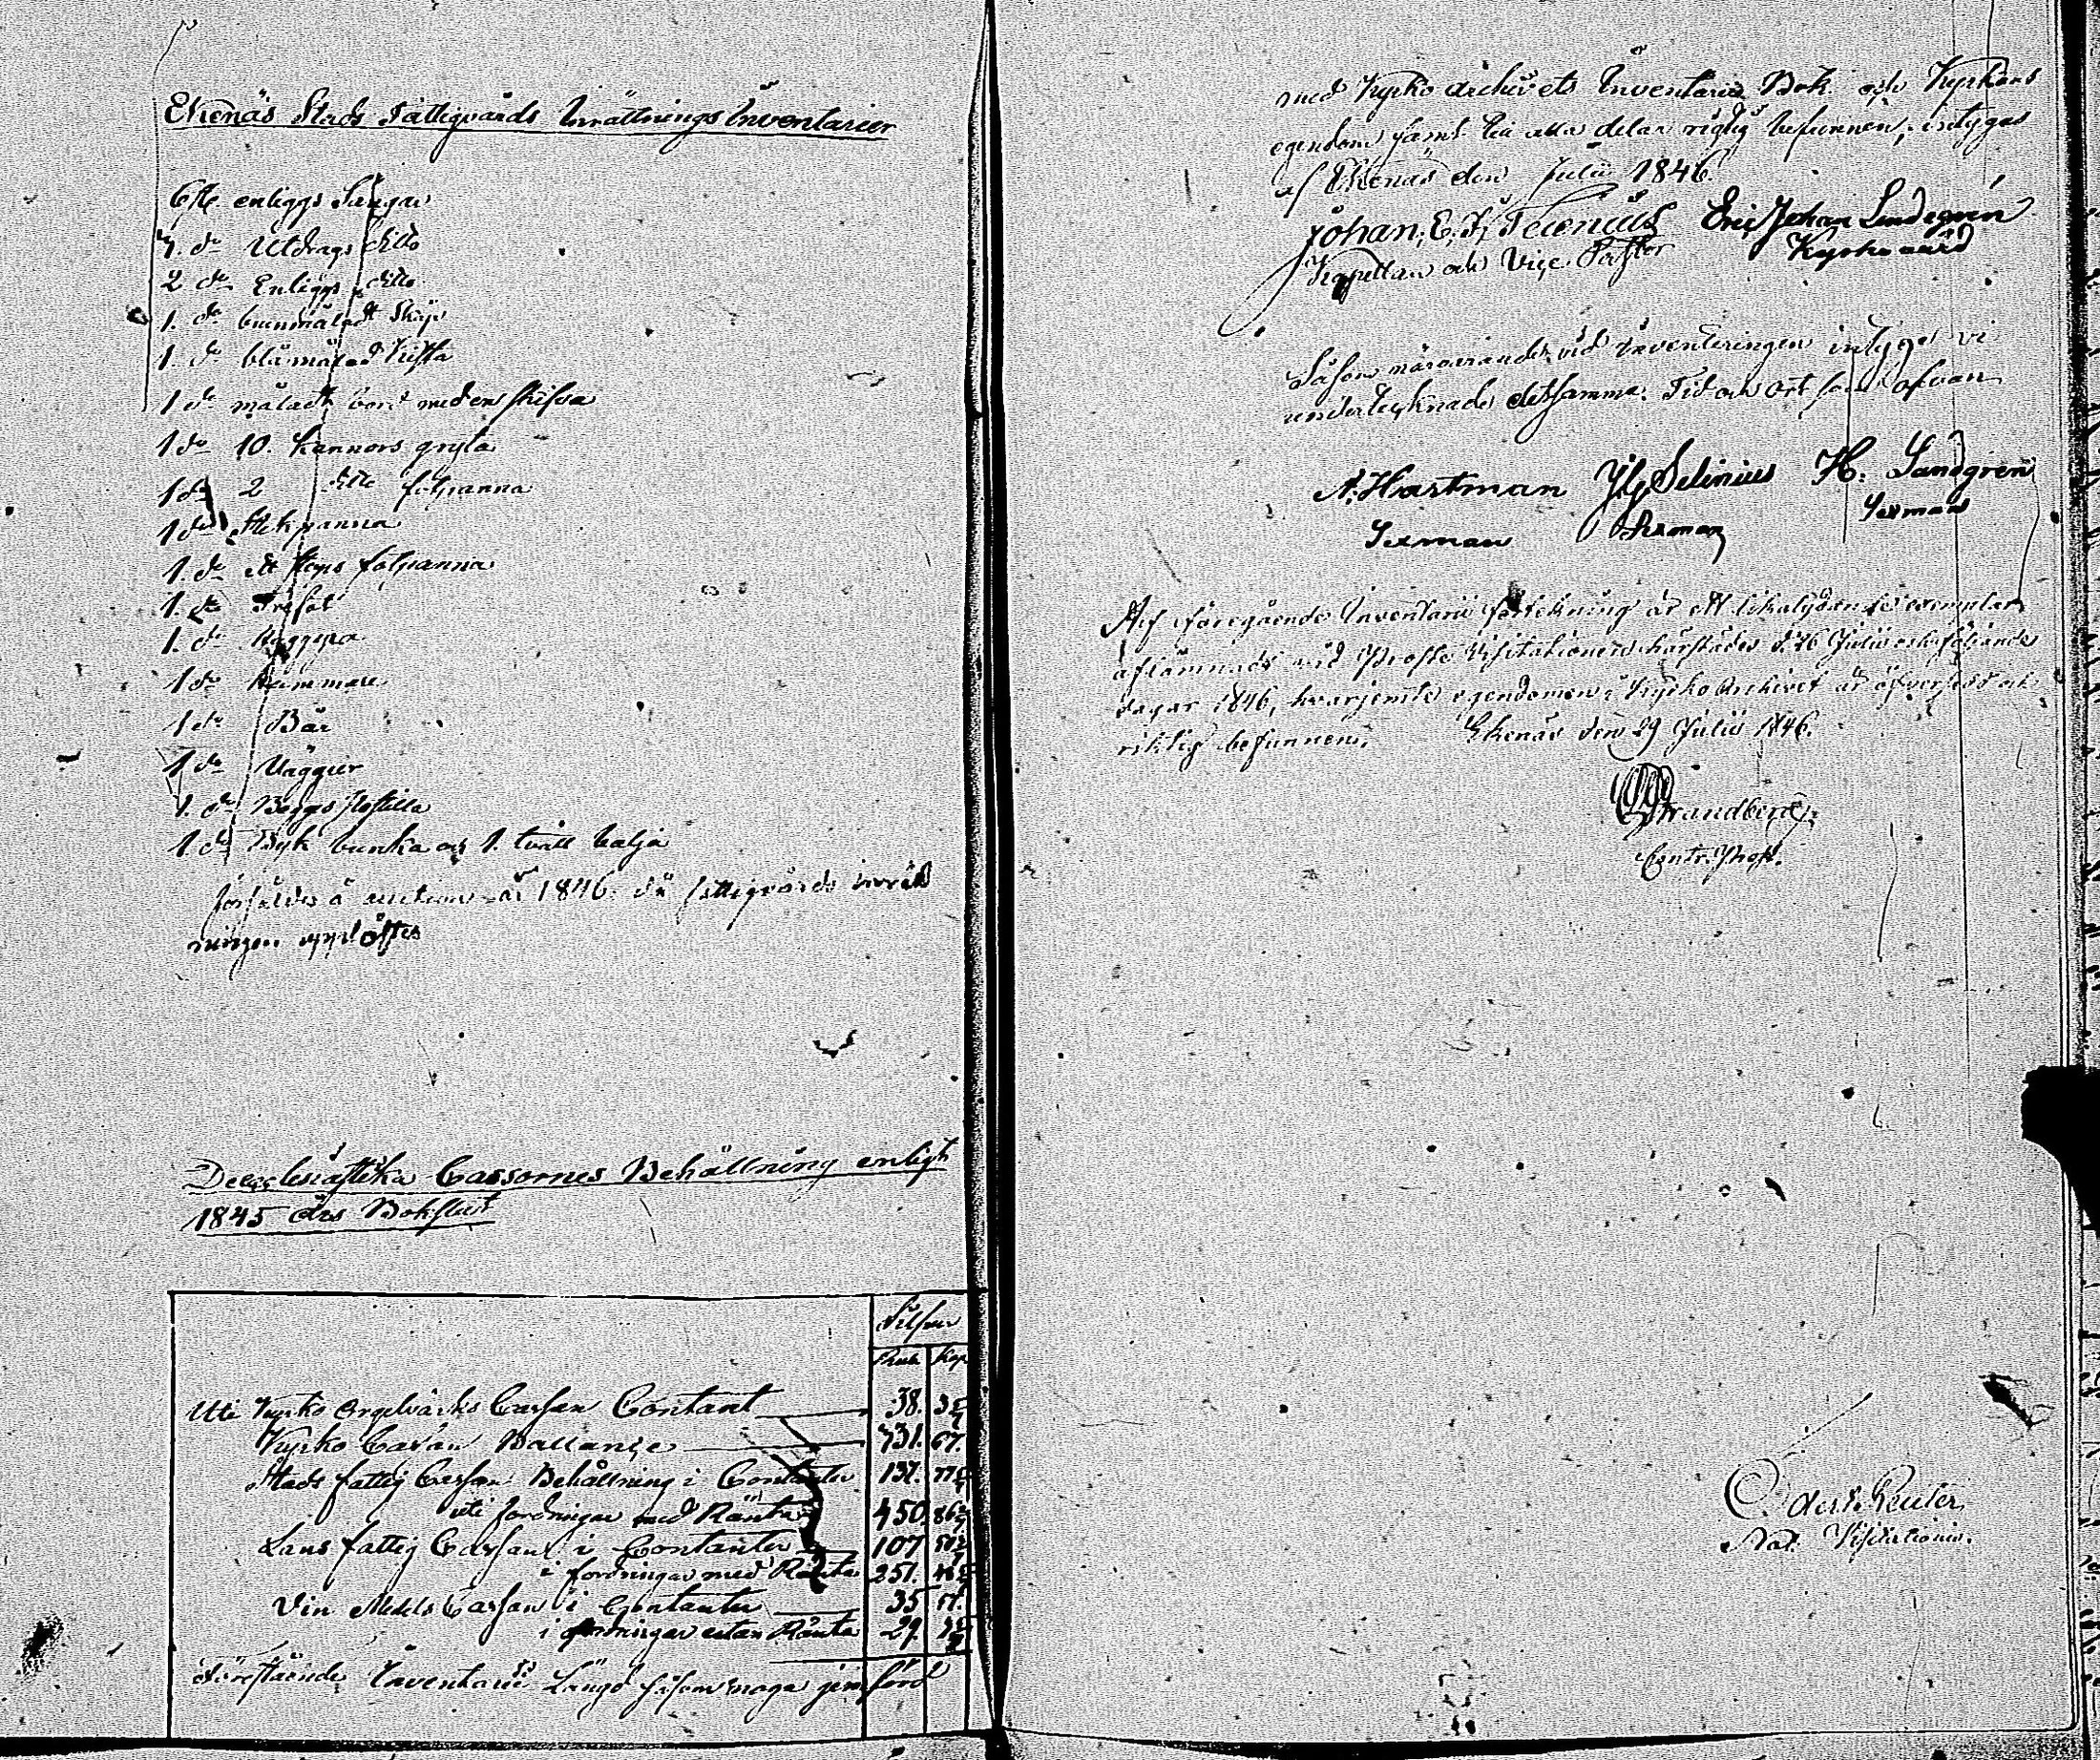 Ekenäs Stads Fattigvårds Inrättnings Inventarier
6 st enliggs Sängar
7. do Utdrags ditto
2 do Enliggs ditto
1. do brunmåladt Skåp
1. do blåmålad Kista
1 do måladt bord med en skifva
1 do 10. Kannors gryta
1 do 2 ditto fotpanna
1 do Stekpanna
1. do ett stops fotpanna
1. do Trefot
1. do
1 do Hammare
1 do Bår
1 do Väggur
1. do Postilla
1. do Byk bunka och 1. tvätt balja
försåldes å auction år 1846. då fattigvårds inrätt
ningen upplöstes
De ecclesiastika Cassornes Behållning enligt
1845 års Bokslut
Silfver
Rub. Kop
Uti Kyrko Orgelverks Cassan Contant 38.
Kyrko Cassan Ballance 731. 67.
Stads fattig Cassan Behållning i Contanter 137.
uti fordringar med Ränta 450
Lans fattig Cassan i Contanter 107
i fordringar med Ränta 251.
Vin Medels Cassan i Contanter 35
i fordringar utan Ränta 29.
Förestående Inventarii Längd såsom noga jemförd
med Kyrko archivets Inventarie Bok och Kyrkans
egendom samt till alla delar rigtig befunnen, intygas
af Ekenäs den Julii 1846.
Johan. E. F. Eric Johan Lindegren
Kapellan och Vice Pastor Kyrkovärd
Såsom närvarande vid inventeringen intyga vi
undertecknade detsamma. Tid och ort som ofvan
A. Hartman Selinius H. Sandgren
Sexman Sexman Sexman
Af föregående Inventarii förtekning är ett likalydande exemplar
aflämnadt vid Prosts Visitationen härstädes d. 26 Julii och följande
dagar 1846, hvarjemte egendomen i Kyrko Archivet är öfversedd och
riktig befunnen. Ekenäs den 29 Julii 1846.
Strandberg
Contr. Prost.
Not. Visitationis.